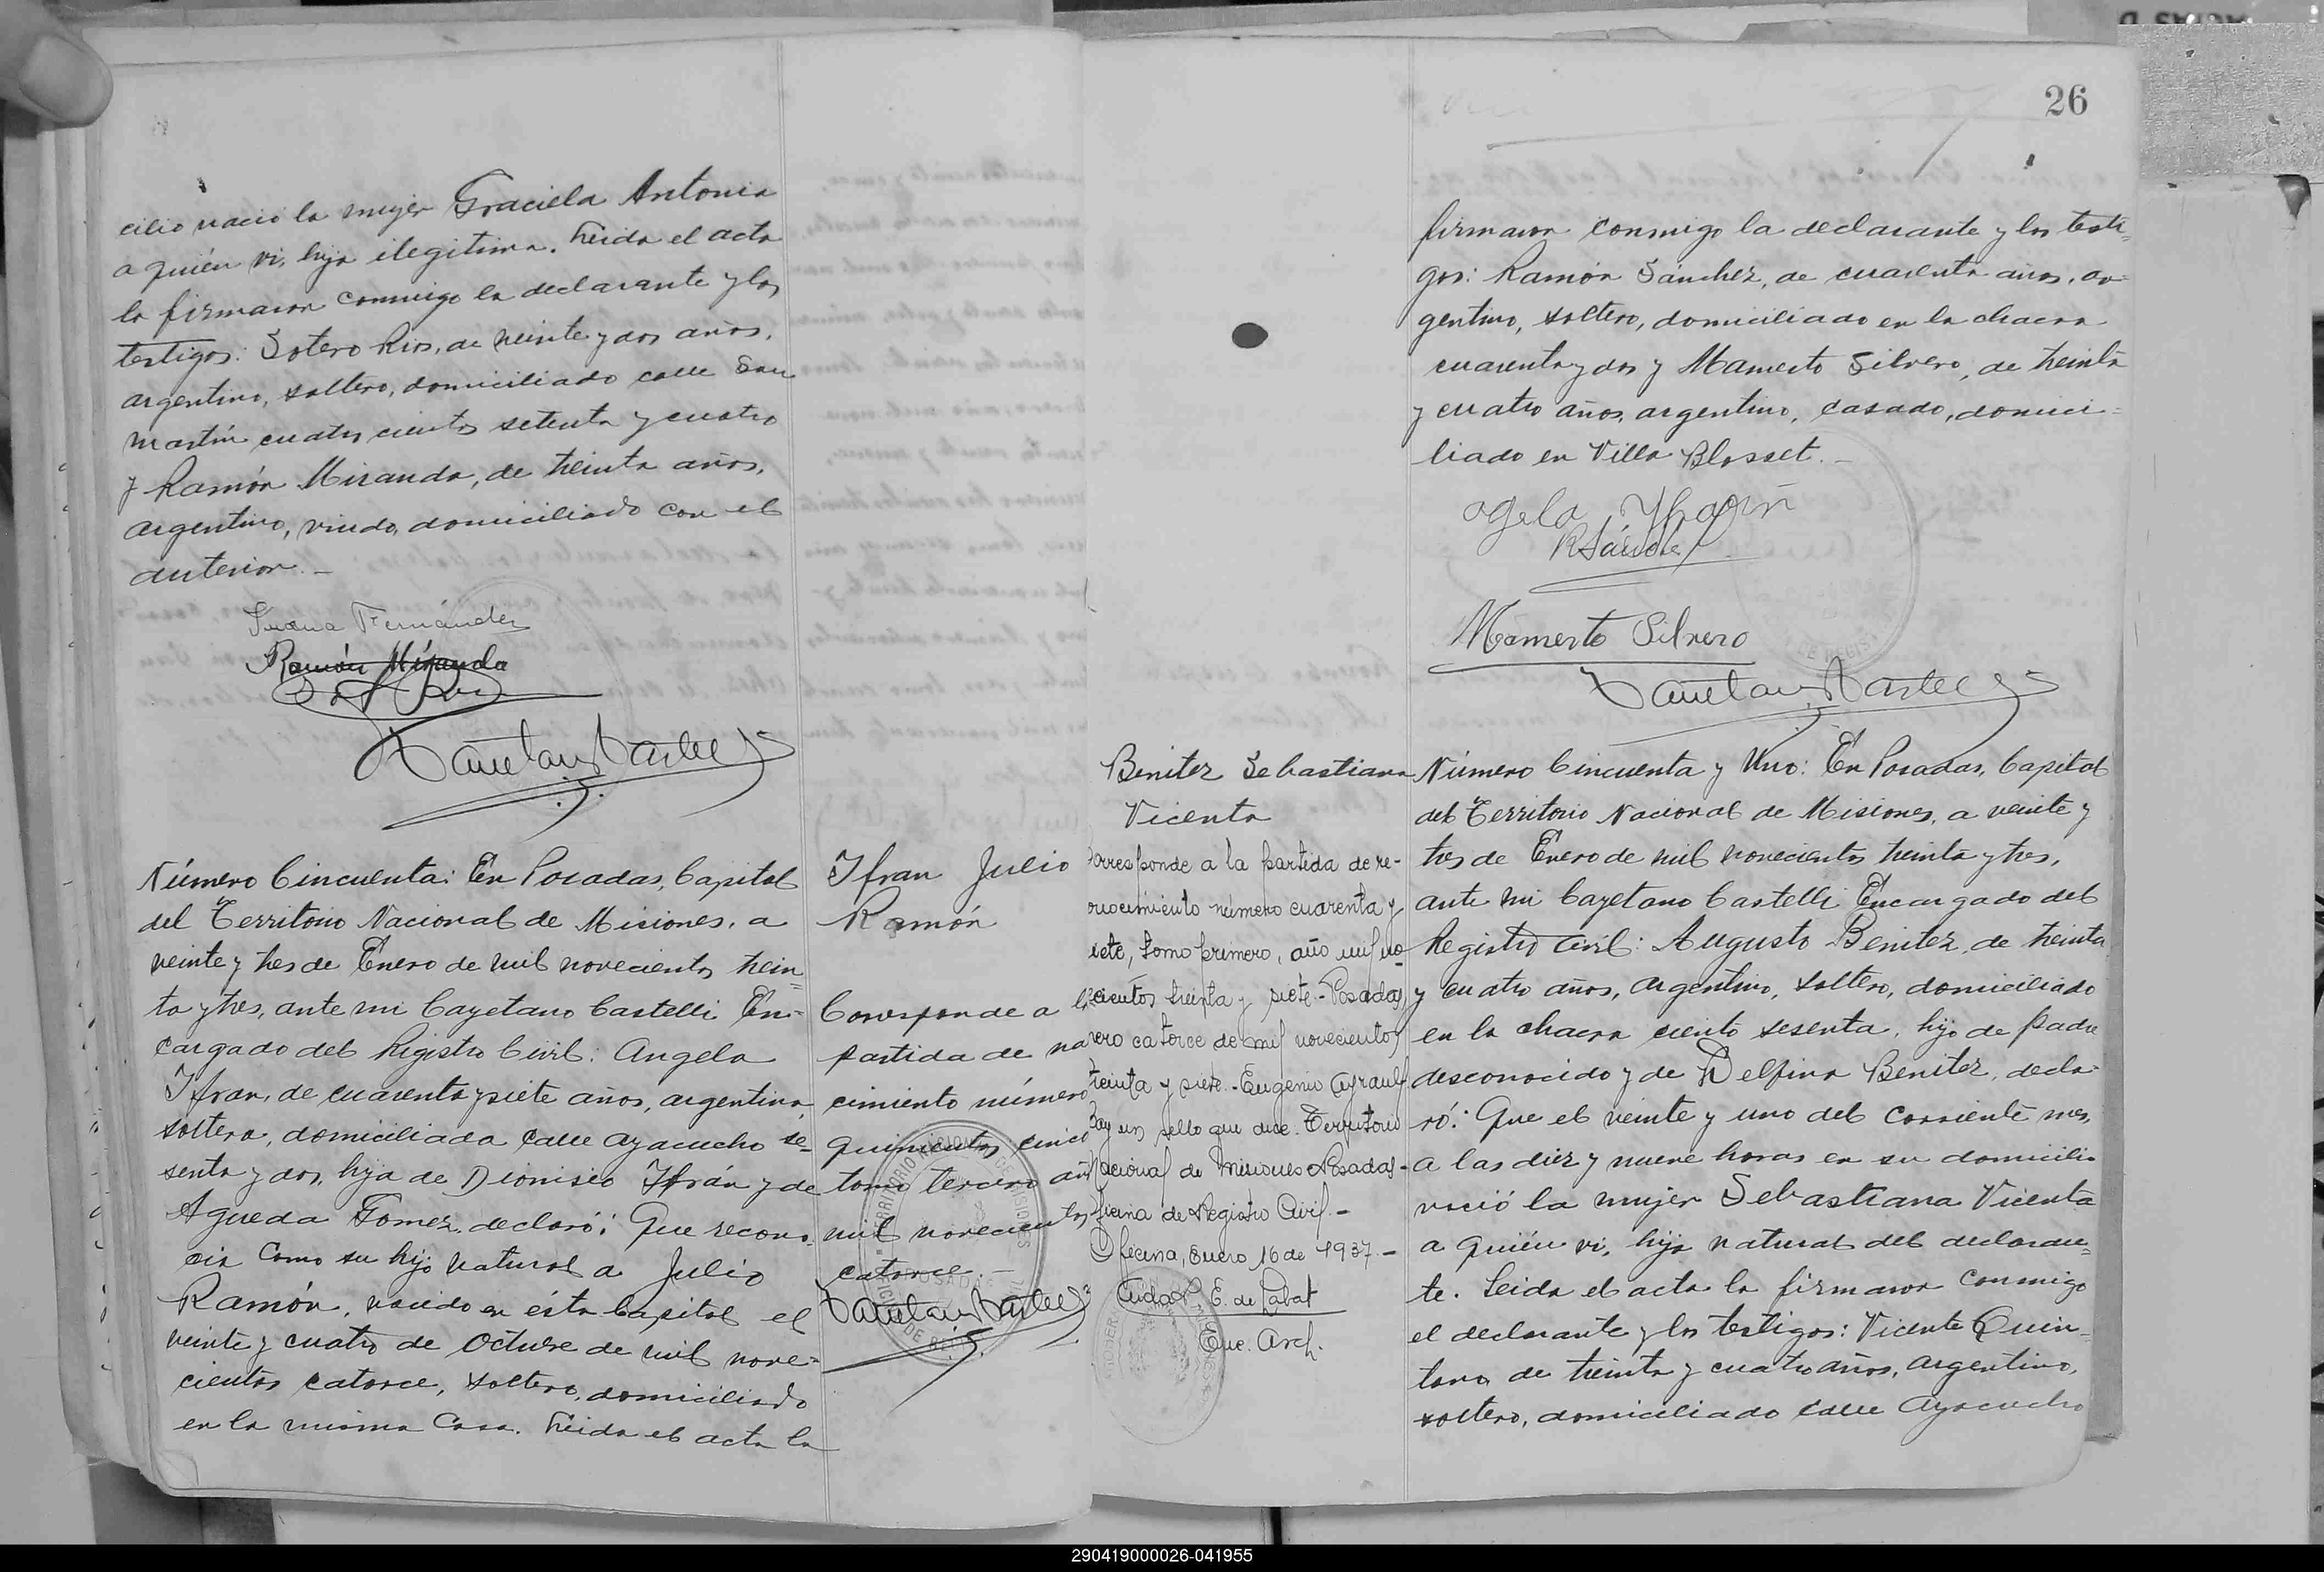 cilio nació la mujer Graciela Antonia
a quién vi, hija ilegitima. Leida el acta
la firmaron conmigo la declarante y los
testigos: Sotero Rios, de veinte y dos años,
argentino, soltero, domiciliado calle San
Martín cuatrocientos setenta y cuatro
y Ramón Miranda, de treinta años,
argentino, viudo, domiciliado con el
anterior.-
Juana Fernández
Ramón Miranda
Número Cincuenta: En Posadas, Capital
del Territorio Nacional de Misiones, a
veinte y tres de Enero de mil novecientos trein=
ta y tres, ante mi Cayetano Castelli En=
cargado del Registro Civil: Angela
Ifran, de cuarenta y siete años, argentina,
soltera, domiciliada calle Ayacucho se=
senta y dos, hija de Dionisio Ifrán y de
Agueda Gomez, declaró: Que recono-
cia como su hijo natural a Julio
Ramón, nacido en ésta Capital el
veinte y cuatro de Octubre de mil nove=
cientos catorce, soltero, domiciliado
en la misma casa. Leida el acta la
Ifran Julio
Ramón
Corresponde a la
partida de na
cimiento número
quinientos cinco
tomo tercero añ
mil novecientos
catorce.-
26
firmaron conmigo la declarante y los testi=
gos: Ramón Sánchez, de cuarenta años, ar=
gentino, soltero, domiciliado en la chacra
cuarenta y dos y Mamerto Silvero, de treinta
y cuatro años, argentino, casado, domici=
liado en Villa Blosset.-
Mamerto Silvero
Benitez Sebastiana
Vicenta
Corresponde a la partida de re-
conocimiento número cuarenta y
siete, tomo primero, año mil no-
vecientos treinta y siete.-Posadas,
Enero catorce de mil novecientos
treinta y siete.-Eugenio
Hay un sello que dice: Territorio
Nacional de Misiones-Posadas-
Oficina de Registro Civil.-
Oficina, Enero 16 de 1937.-
E. de Labat
Enc. Arch.
Número Cincuenta y Uno: En Posadas, Capital
del Territorio Nacional de Misiones, a veinte y
tres de Enero de mil novecientos treinta y tres,
ante mi Cayetano Castelli Encargado del
Registro Civil: Augusto Benitez, de treinta
y cuatro años, argentino, soltero, domiciliado
en la chacra ciento sesenta, hijo de padre
desconocido y de Delfina Benitez, decla-
ró: Que el veinte y uno del corriente mes,
a las diez y nueve horas en su domicilio
nació la mujer Sebastiana Vicenta
a quién vi, hija natural del declaran=
te. Leida el acta la firmaron conmigo
el declarante y los testigos: Vicente Quin=
tana de treinta y cuatro años, argentino,
soltero, domiciliado calle Ayacucho
290419000026-041955